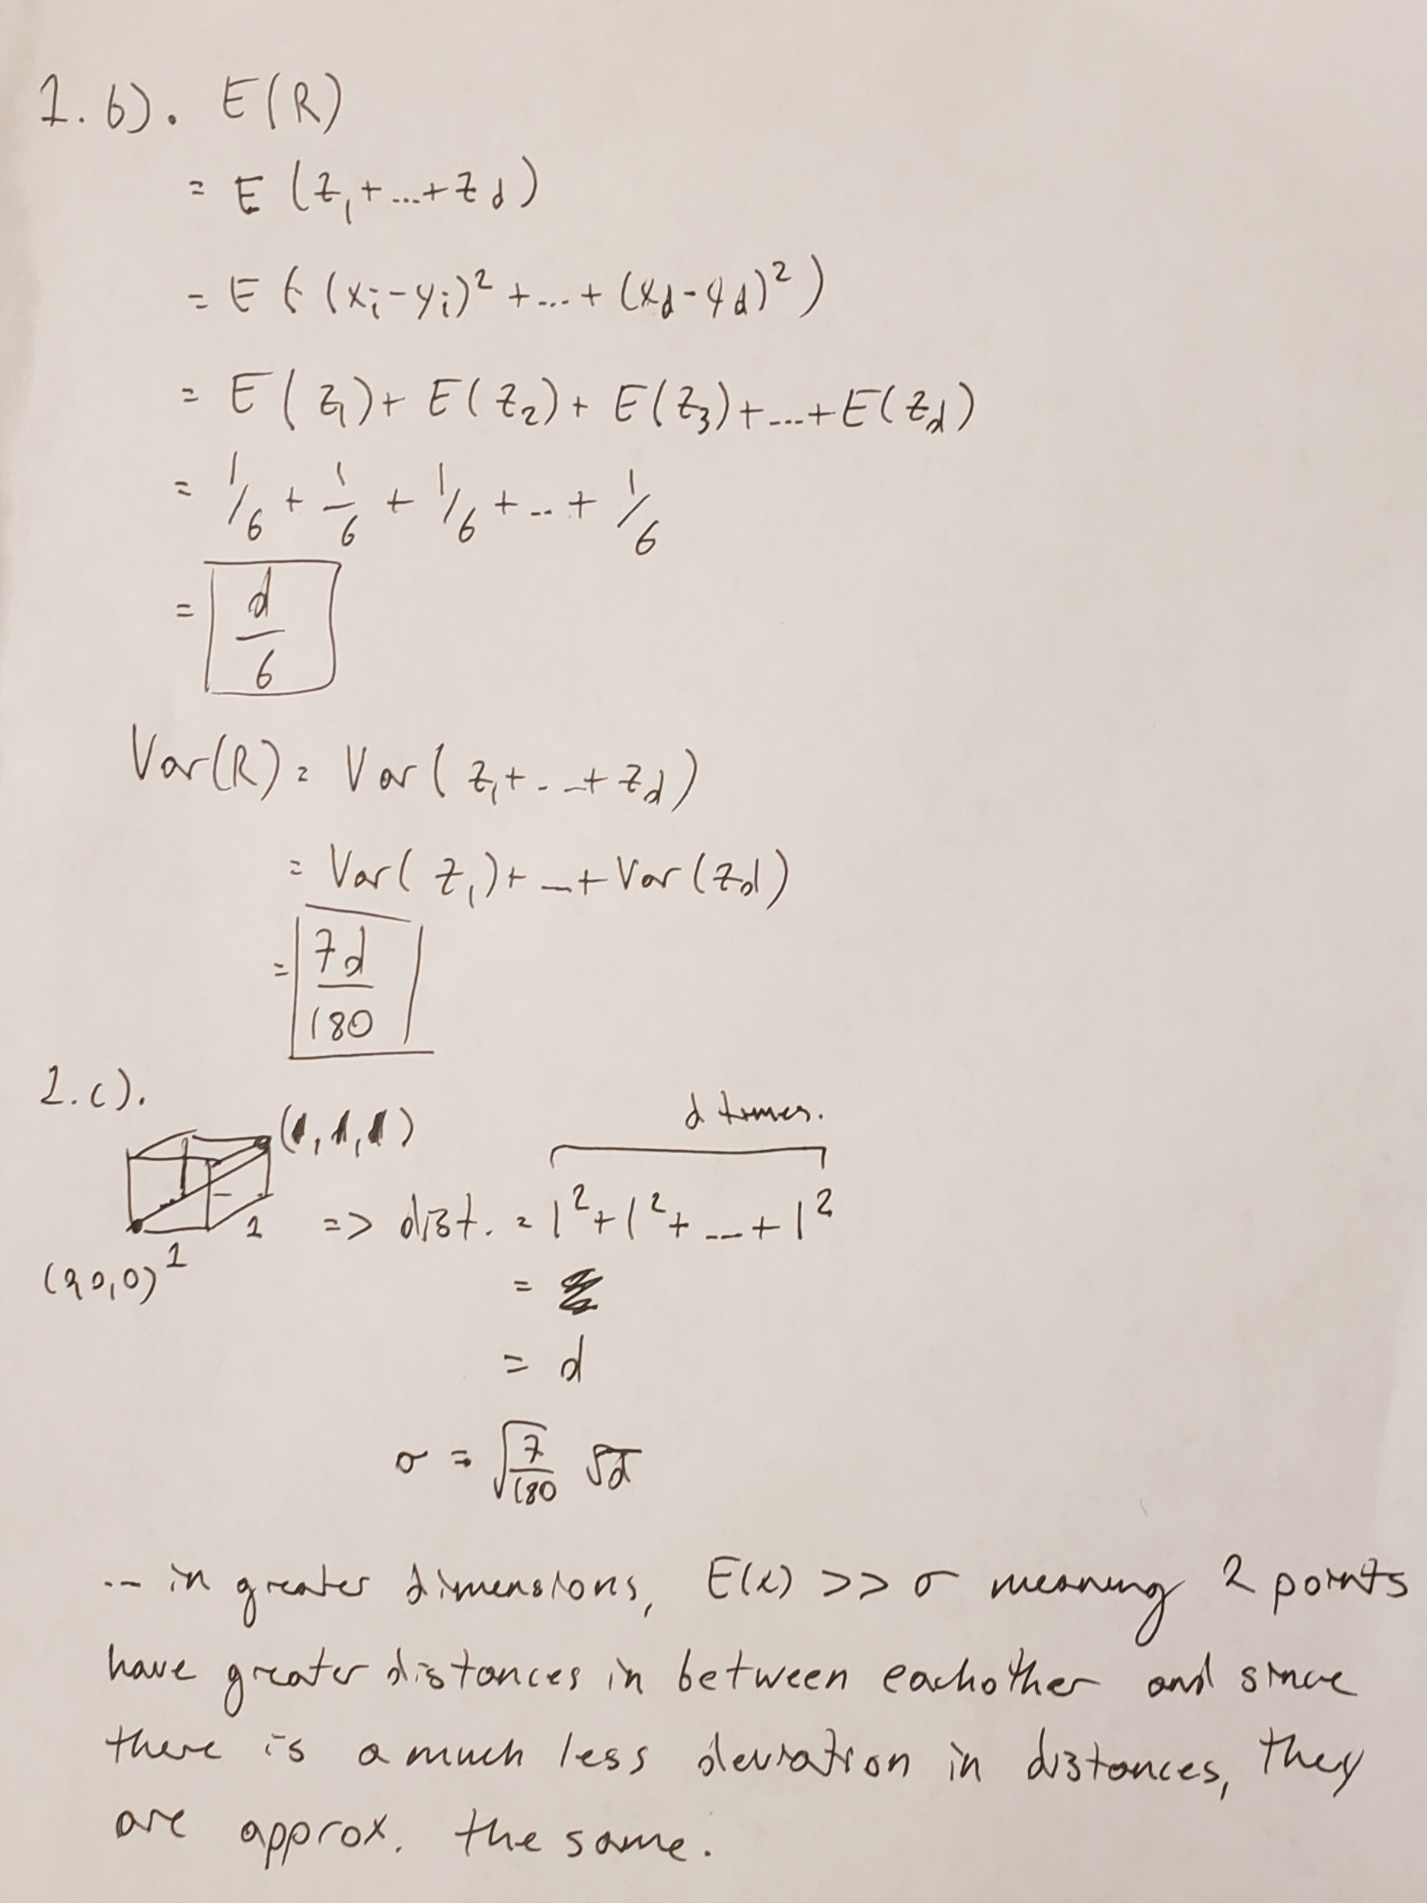 1.b). E(R)
= E (z₁+...+z d)
= E ( (xᵢ-yᵢ)² +...+ (x_d-y_d)² )
= E( z₁)+ E(z₂)+ E(z₃)+...+E(z_d)
= 1/6 + 1/6 + 1/6 +..+ 1/6
= d/6
Var(R) = Var( z₁+...+z_d)
= Var( z₁)+ ...+ Var(z_d)
= 7d/180
1.c).
(1,1,1)
d times.
=> dist. = 1²+1²+...+1²
1
1
(0,0,0)
=
= d
σ = √(7/180) √d
... in greater dimensions, E(x) >> σ meaning 2 points
have greater distances in between eachother and since
there is a much less deviation in distances, they
are approx. the same.